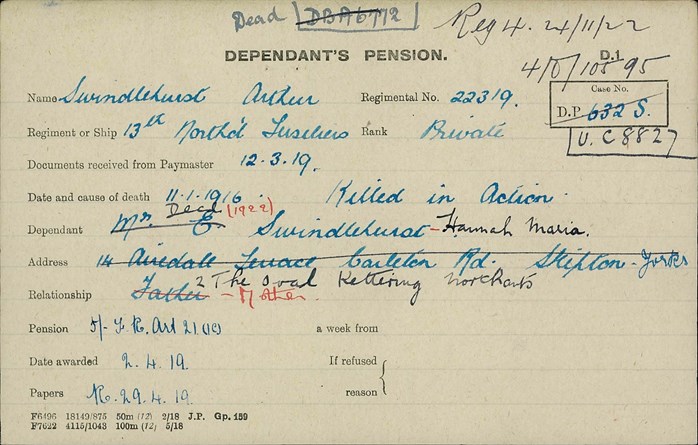 Dead DBA6772 Reg 4. 24/11/22
DEPENDANT'S PENSION. D.1
4/0/105 95
Name Swindlehurst Arthur Regimental No. 22319. Case No.
D.P. 632 S.
Regiment or Ship 13th North'd Fusiliers Rank Private U.C 8827
Documents received from Paymaster 12.3.19.
Date and cause of death 11.1.1916. Killed in Action.
Dead (1922)
Dependant Mr. E. Swindlehurst - Hannah Maria.
Address 14 Airedale Terrace Carleton Rd. Skipton - Yorks
2 The Oval Kettering Northants
Relationship Father - Mother.
Pension 5/- F.R. Art 21(1C) a week from
Date awarded 2.4.19. If refused
Papers R. 29.4.19. reason
F6496 18149/875 50m (12) 2/18 J.P. Gp. 159
F7622 4115/1043 100m (12) 5/18